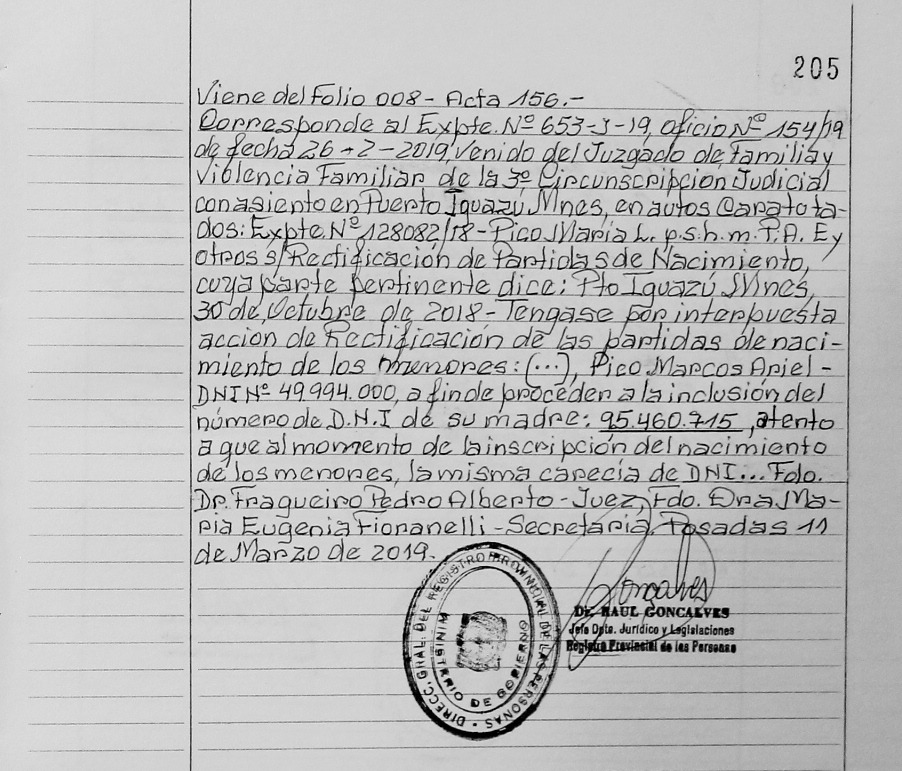 205
Viene del Folio 008 - Acta 156.-
Corresponde al Expte. Nº 653-J-19, Oficio Nº 154/19
de fecha 26-2-2019, Venido del Juzgado de Familia y
Violencia Familiar de la 3º Circunscripción Judicial
con asiento en Puerto Iguazú Mnes, en autos Caratota-
dos: Expte Nº 128082/18 - Pico María L. p.s.h.m. P.A. E y
otros s/Rectificación de Partidas de Nacimiento,
cuya parte pertinente dice: Pto Iguazú Mnes,
30 de Octubre de 2018 - Tengase por interpuesta
acción de Rectificación de las partidas de naci-
miento de los menores: (...), Pico Marcos Ariel -
DNI Nº 49.994.000, a fin de proceder a la inclusión del
número de D.N.I de su madre: 95.460.715, atento
a que al momento de la inscripción del nacimiento
de los menores, la misma carecía de DNI... Fdo.
Dr. Fragueiro Pedro Alberto - Juez, Fdo. Dra. Ma-
ria Eugenia Fioranelli - Secretaria. Posadas 11
de Marzo de 2019.
DIRECC. GRAL. DEL REGISTRO PROVINCIAL DE LAS PERSONAS
MINISTERIO DE GOBIERNO
Goncalves
Dr. RAUL GONCALVES
Jefe Dpto. Jurídico y Legislaciones
Registro Provincial de las Personas